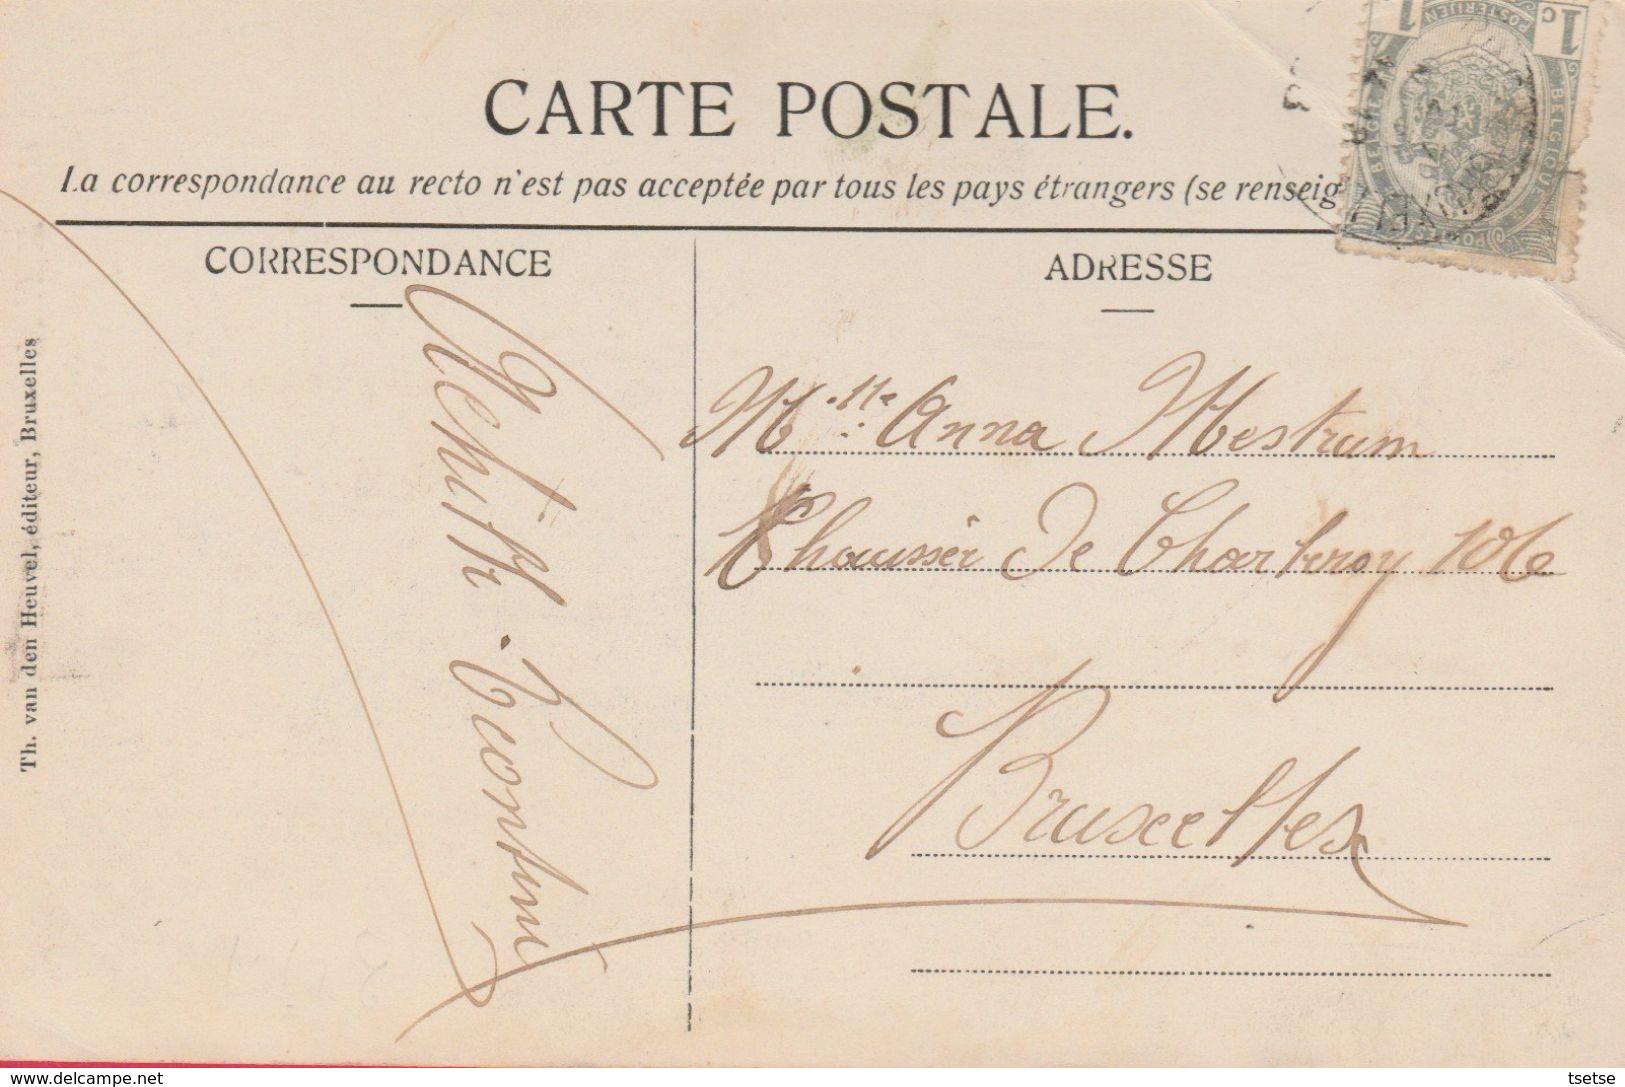 CARTE POSTALE.
La correspondance au recto n'est pas acceptée par tous les pays étrangers (se renseig
CORRESPONDANCE
ADRESSE
Mlle Anna Mestrum
Chaussée De Charleroy 106
Bruxelles
Th. van den Heuvel, éditeur, Bruxelles
1c 1
POSTERIJEN
BELGIQUE
BELGIË
POSTES
www.delcampe.net
tsetse